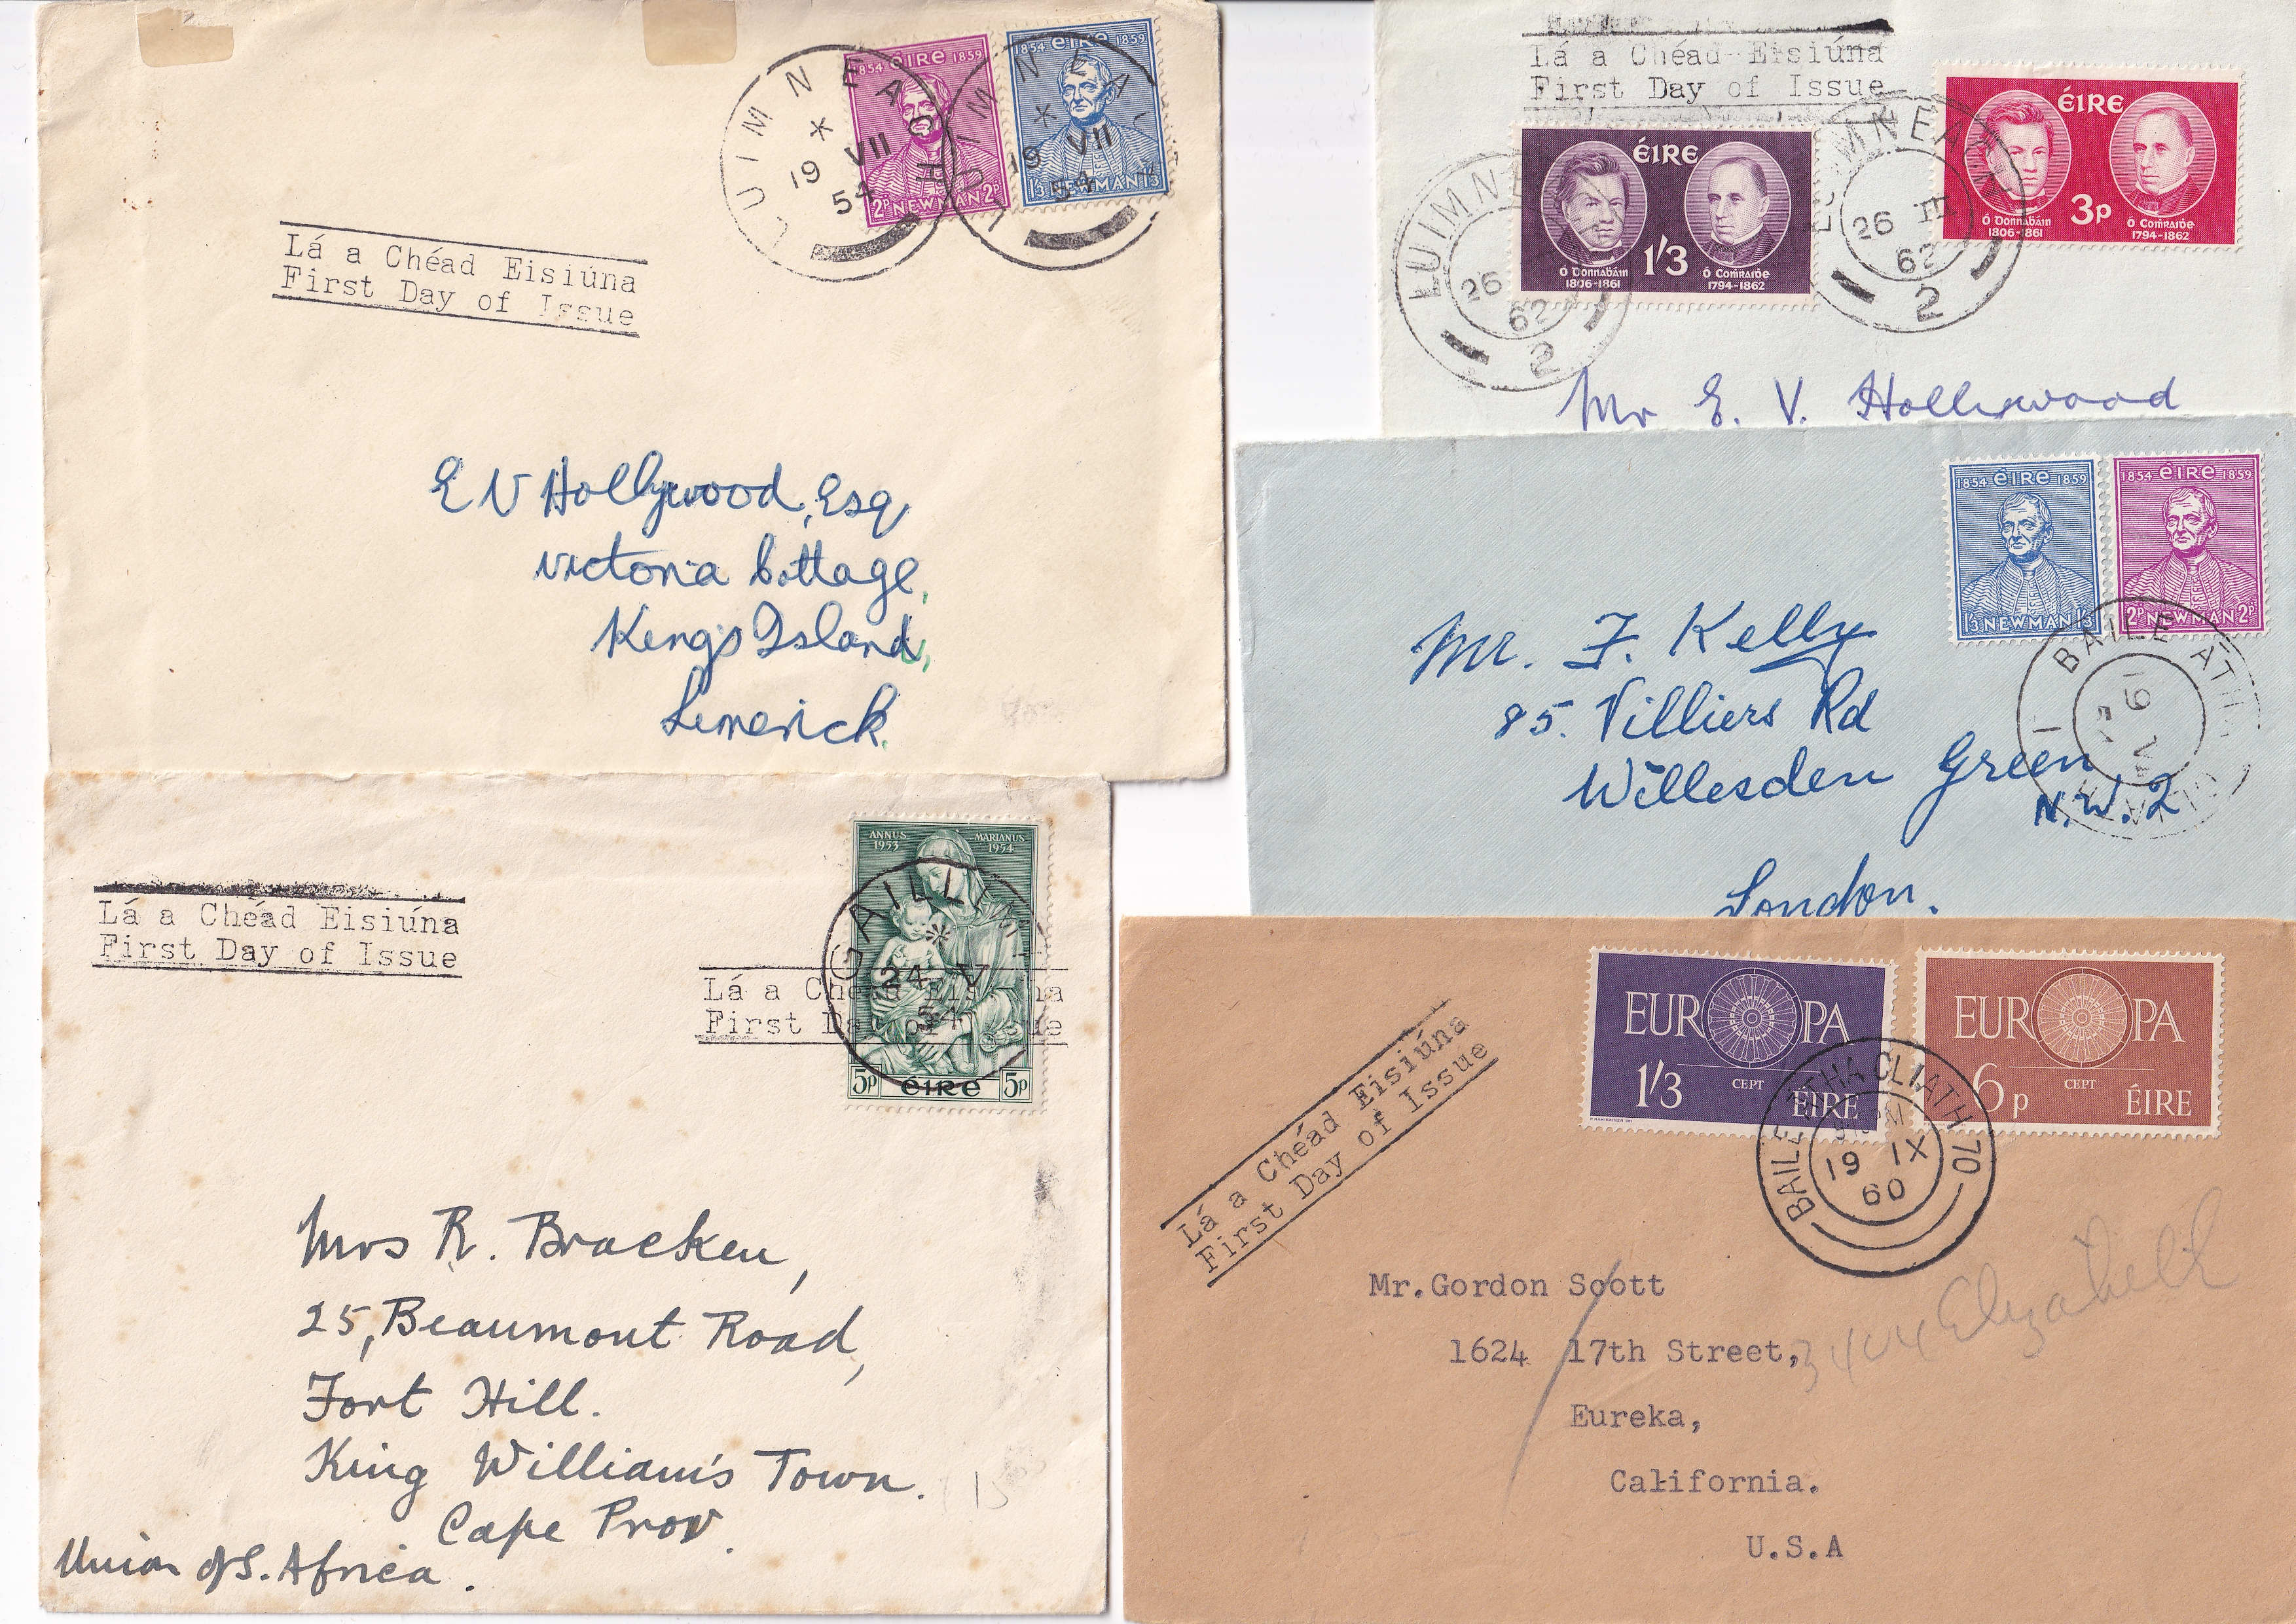 1854 éire 1859
2P NEWMAN 2P
1854 éire 1859
1/3 NEWMAN 1/3
LUIMNEA
19 VII
54
LUIMNEAC
19 VII
54
Lá a Chéad Eisiúna
First Day of Issue
E V Hollywood, Esq
Victoria Cottage,
King's Island,
Limerick.
Lá a Chéad Eisiúna
First Day of Issue
ÉIRE
Ó Donnabáin
1806-1861
1/3
Ó Comraide
1794-1862
ÉIRE
Ó Donnabáin
1806-1861
3p
Ó Comraide
1794-1862
LUIMNE
26
62
2
LUIMNEACH
26 III
62
2
Mr E. V. Hollywood
1854 éire 1859
1/3 NEWMAN 1/3
1854 éire 1859
2P NEWMAN 2P
BAILE ÁTHA CLIATH
19 VII
Mr. F. Kelly
85. Villiers Rd
Willesden Green
N.W.2
London.
Lá a Chéad Eisiúna
First Day of Issue
ANNUS MARIANUS
1953 1954
5p éire 5p
GAILLIMH
24 V
54
Lá a Chéad Eisiúna
First Day of Issue
Mrs R. Bracken,
25, Beaumont Road,
Fort Hill.
King William's Town.
Cape Prov.
Union of S. Africa.
Lá a Chéad Eisiúna
First Day of Issue
EUROPA
1/3 CEPT ÉIRE
EUROPA
6p CEPT ÉIRE
BAILE ÁTHA CLIATH 70
19 IX
60
Mr.Gordon Scott
1624 17th Street,
3404 Elizabeth
Eureka,
California.
U.S.A